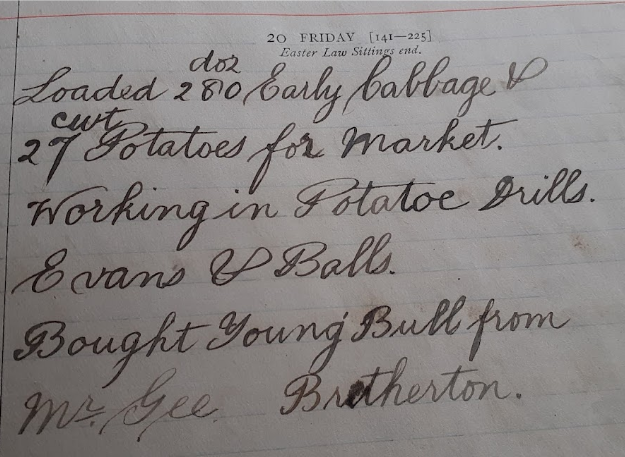 20 FRIDAY [141—225]
Easter Law Sittings end.
doz
Loaded 280 Early Cabbage &
cwt
27 Potatoes for Market.
Working in Potatoe Drills.
Evans & Balls.
Bought Young Bull from
Mr. Gee Bretherton.